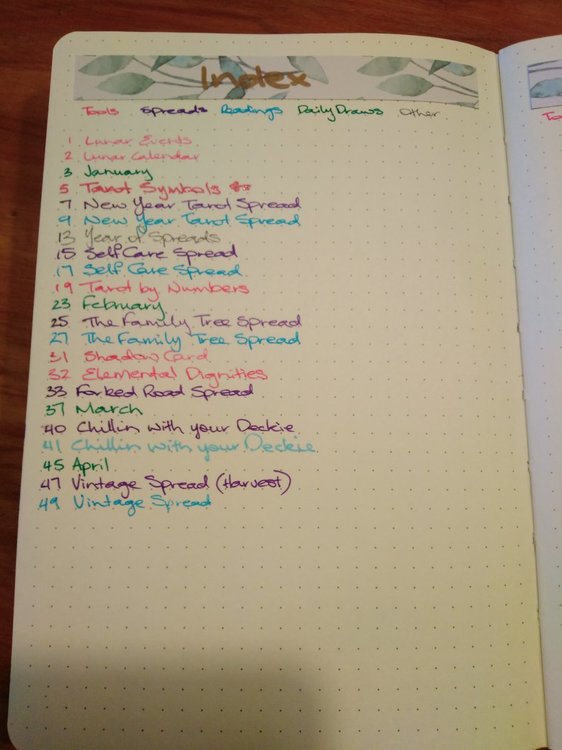 Index
Tools Spreads Readings Daily Draws Other
1 Lunar Events
2 Lunar Calendar
3 January
5 Tarot Symbols
7 New Year Tarot Spread
9 New Year Tarot Spread
13 Year of Spreads
15 Self Care Spread
17 Self Care Spread
19 Tarot by Numbers
23 February
25 The Family Tree Spread
27 The Family Tree Spread
31 Shadow Card
32 Elemental Dignities
33 Forked Road Spread
37 March
40 Chillin with your Deckie
41 Chillin with your Deckie
45 April
47 Vintage Spread (Harvest)
49 Vintage Spread
To